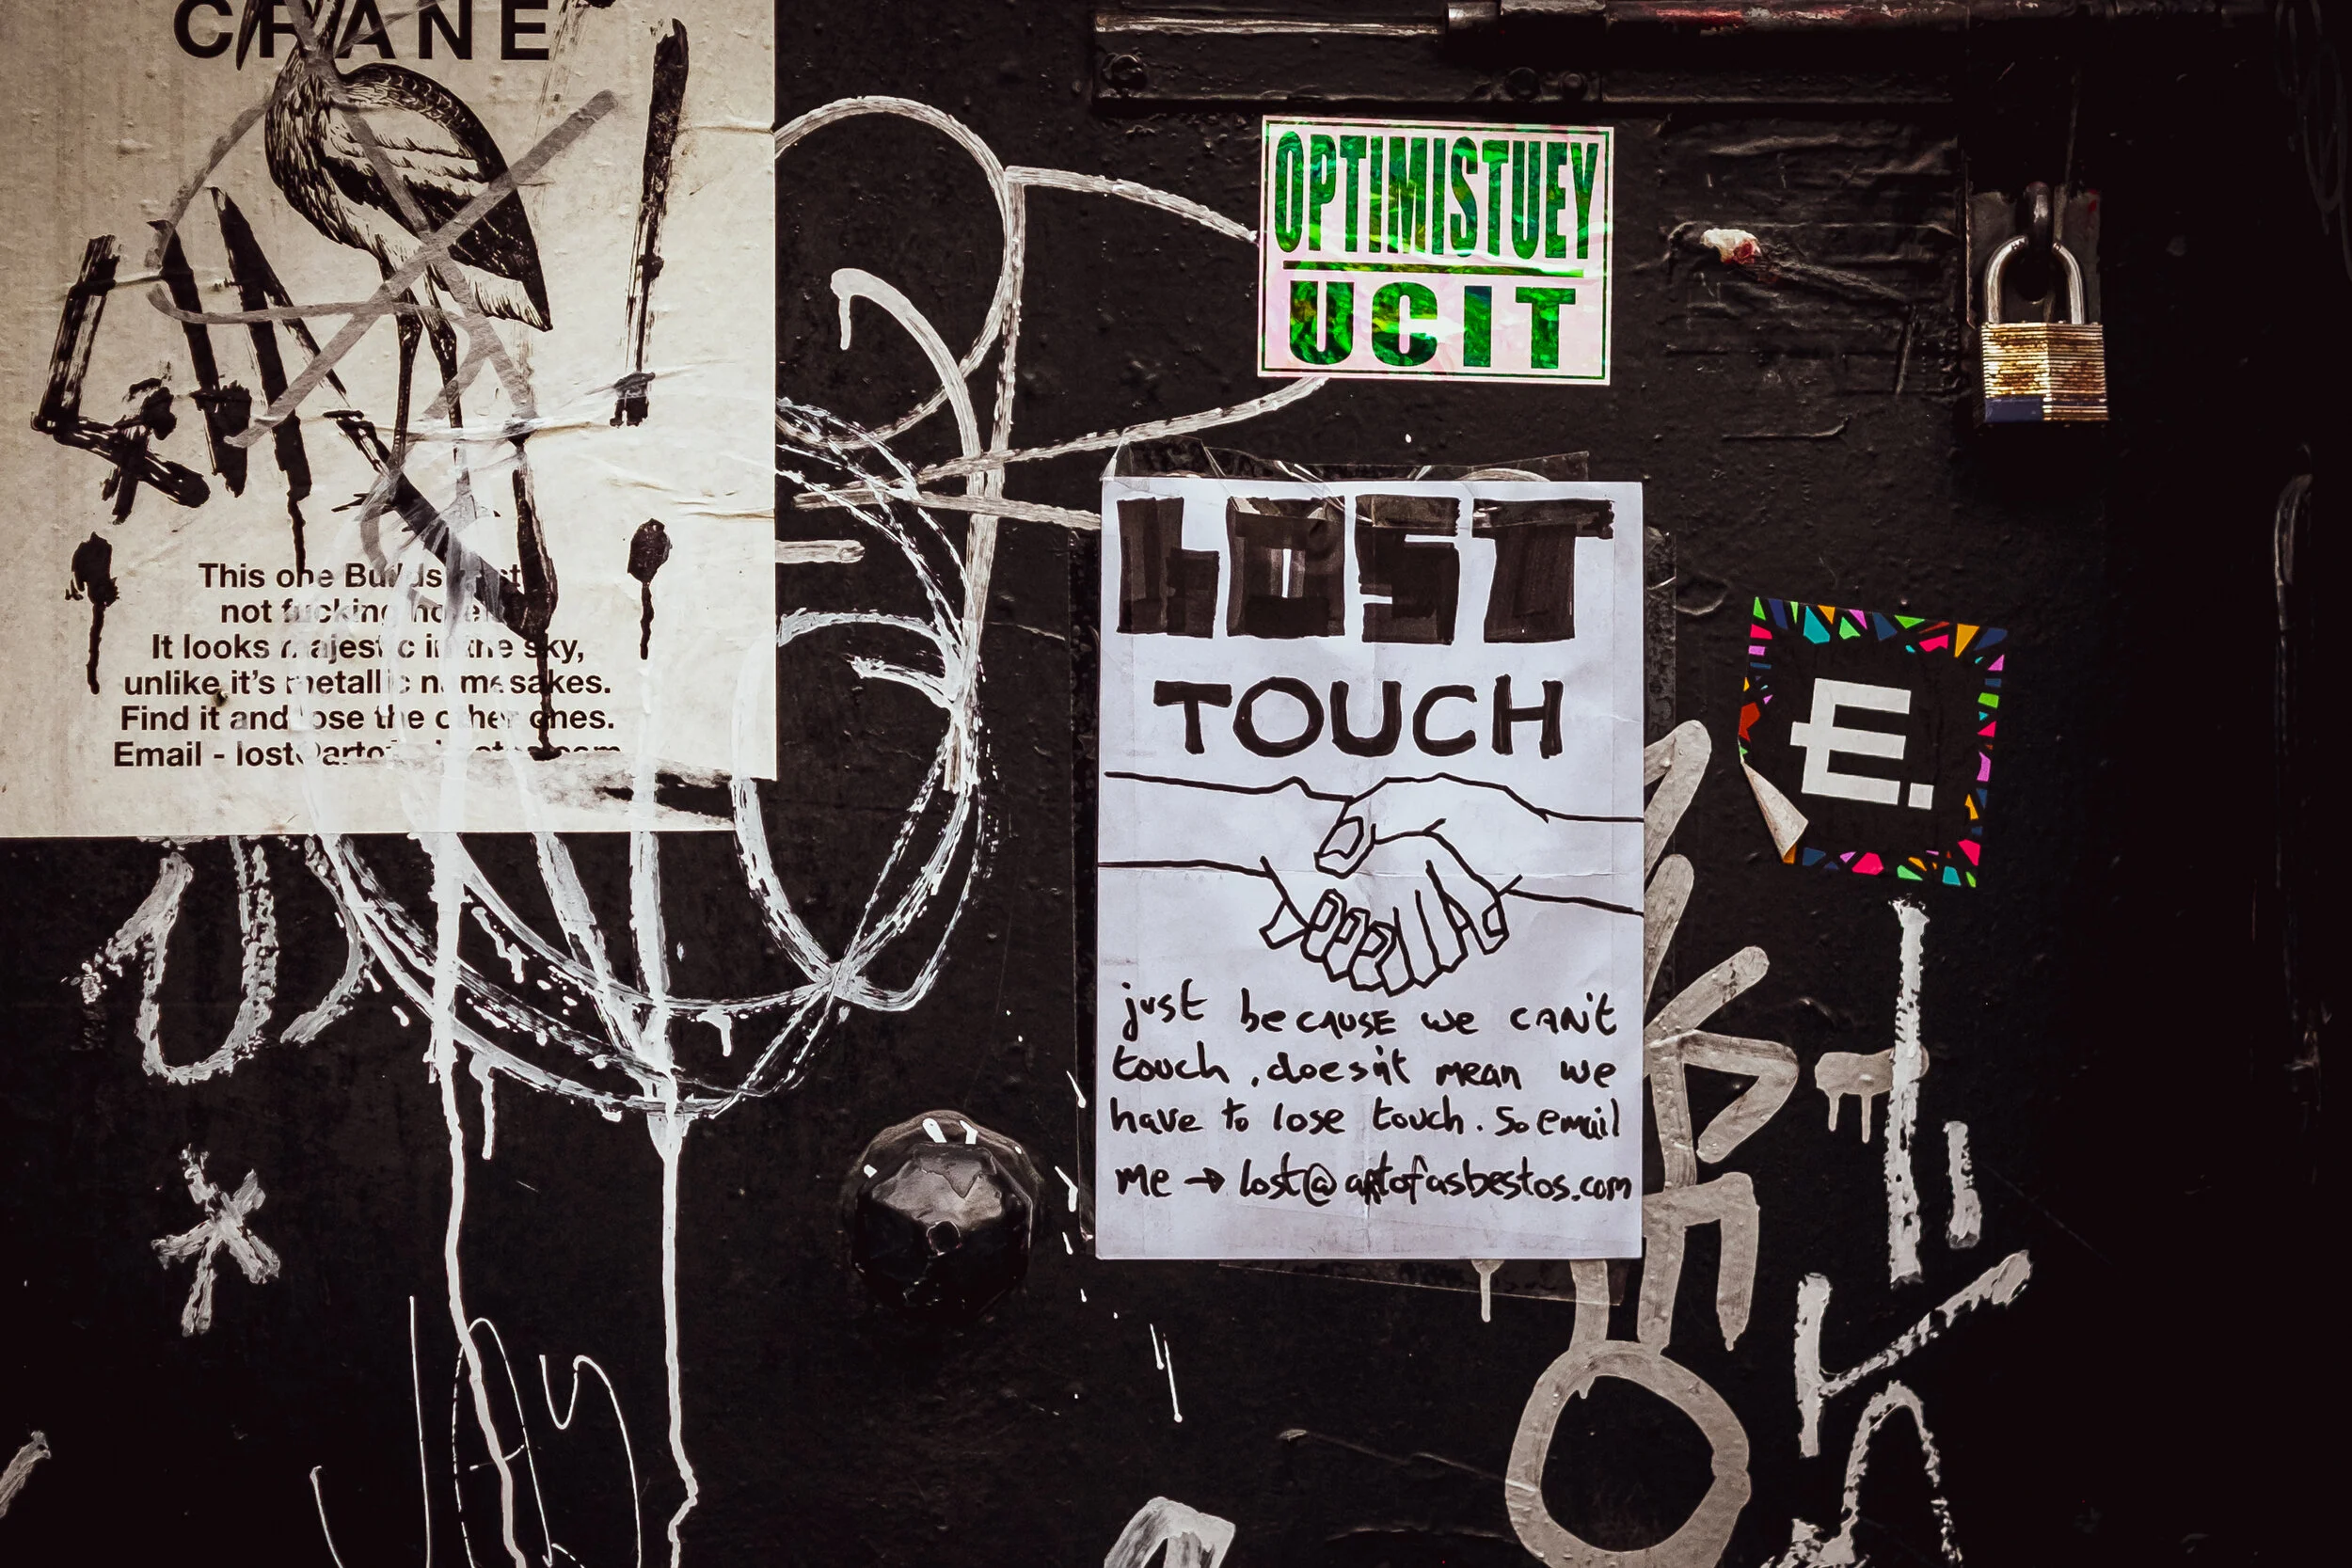 CRANE
This one Builds
not fucking
It looks majestic in the sky,
unlike it's metallic namesakes.
Find it and lose the other ones.
Email - lost@artof
OPTIMISTUEY
UCIT
LOST
TOUCH
just because we can't
touch, doesn't mean we
have to lose touch. So email
me → lost@artofasbestos.com
E.